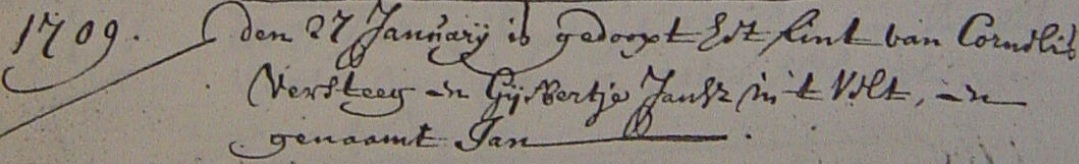 1709. den 27 January is gedoopt het kint van Cornelis
Versteeg en Gijsbertje Jans in 't Velt, en
genaamt Jan.